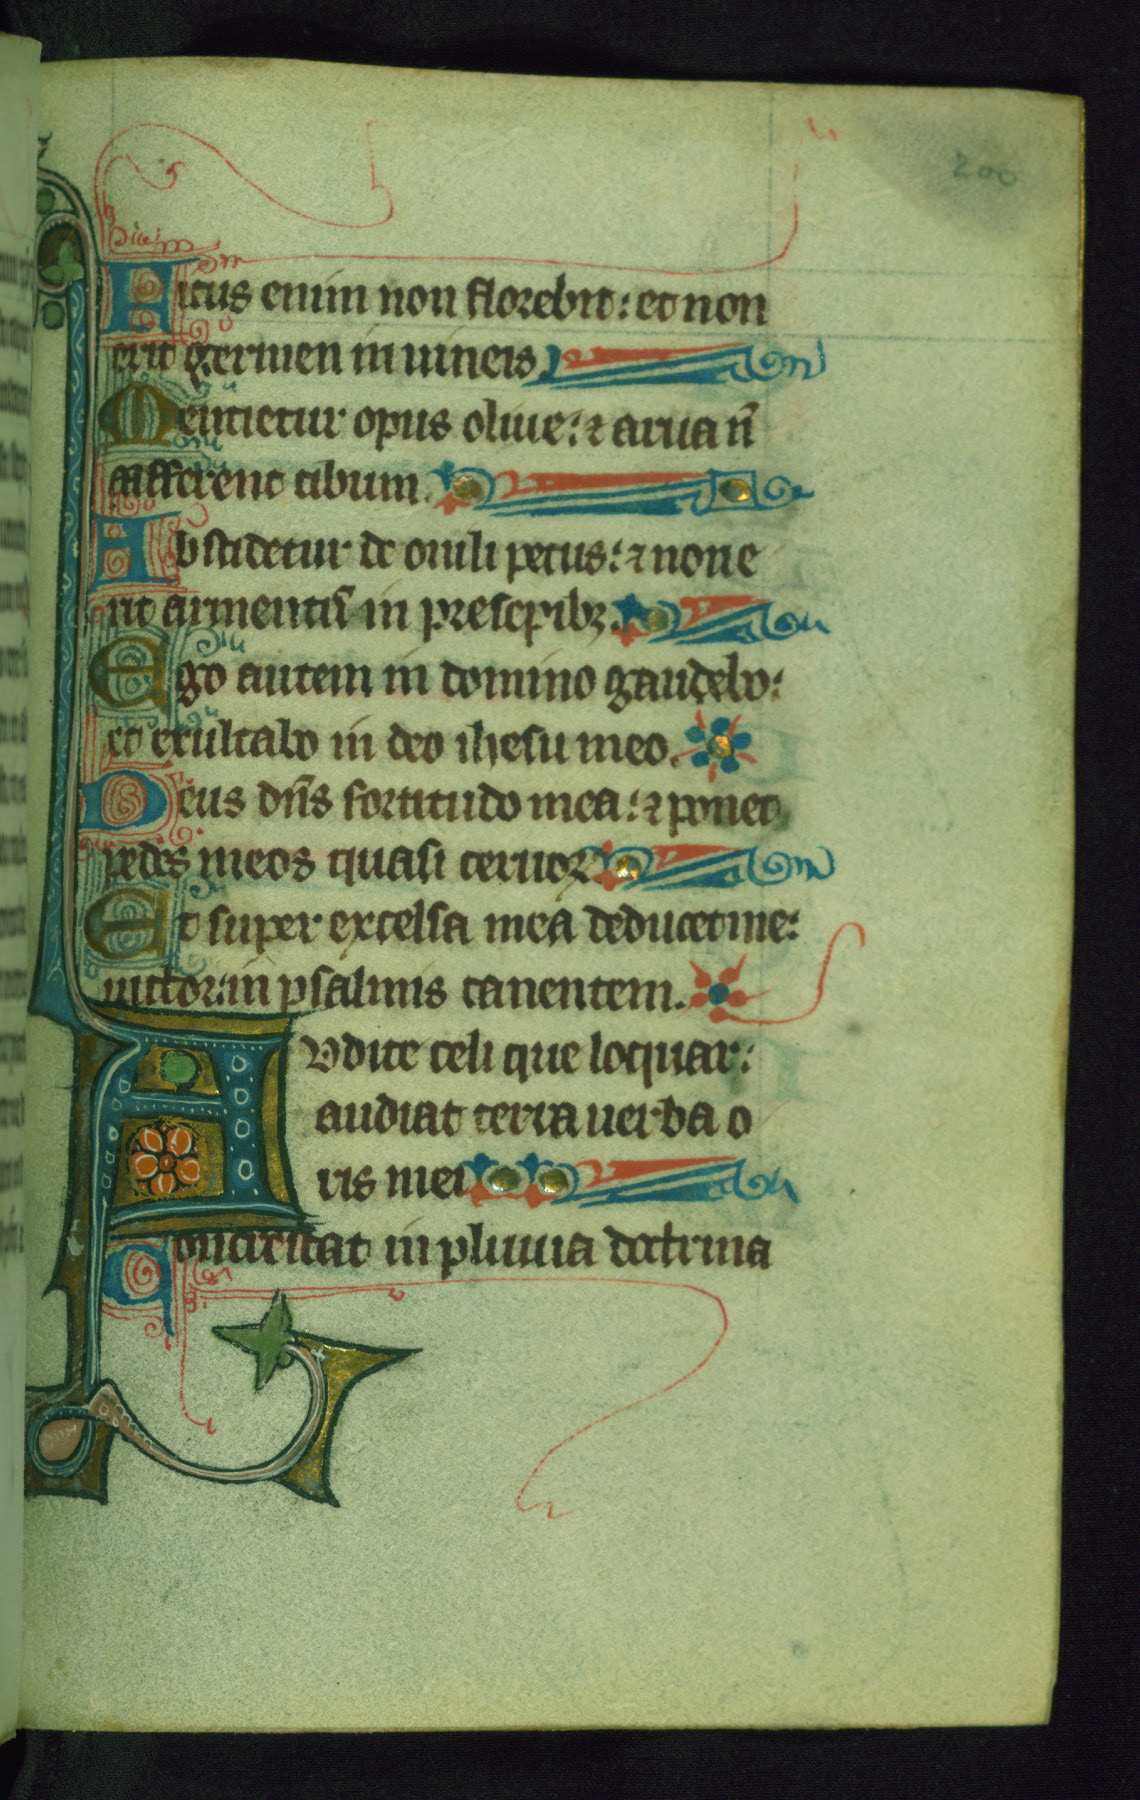 200
Ficus enim non florebit: et non
erit germen in uineis
Mentietur opus oliue: ⁊ arua n̄
afferent cibum.
Abscidetur de ouili pecus: ⁊ non e
rit armentū in presepibꝫ.
Ego autem in domino gaudebo:
et exultabo in deo ihesu meo.
Deus dn̄s fortitudo mea: ⁊ ponet
pedes meos quasi ceruoꝝ
Et super excelsa mea deducet me:
uictor in psalmis canentem.
Audite celi que loquar:
audiat terra uerba o
ris mei
Concrescat in pluuia doctrina